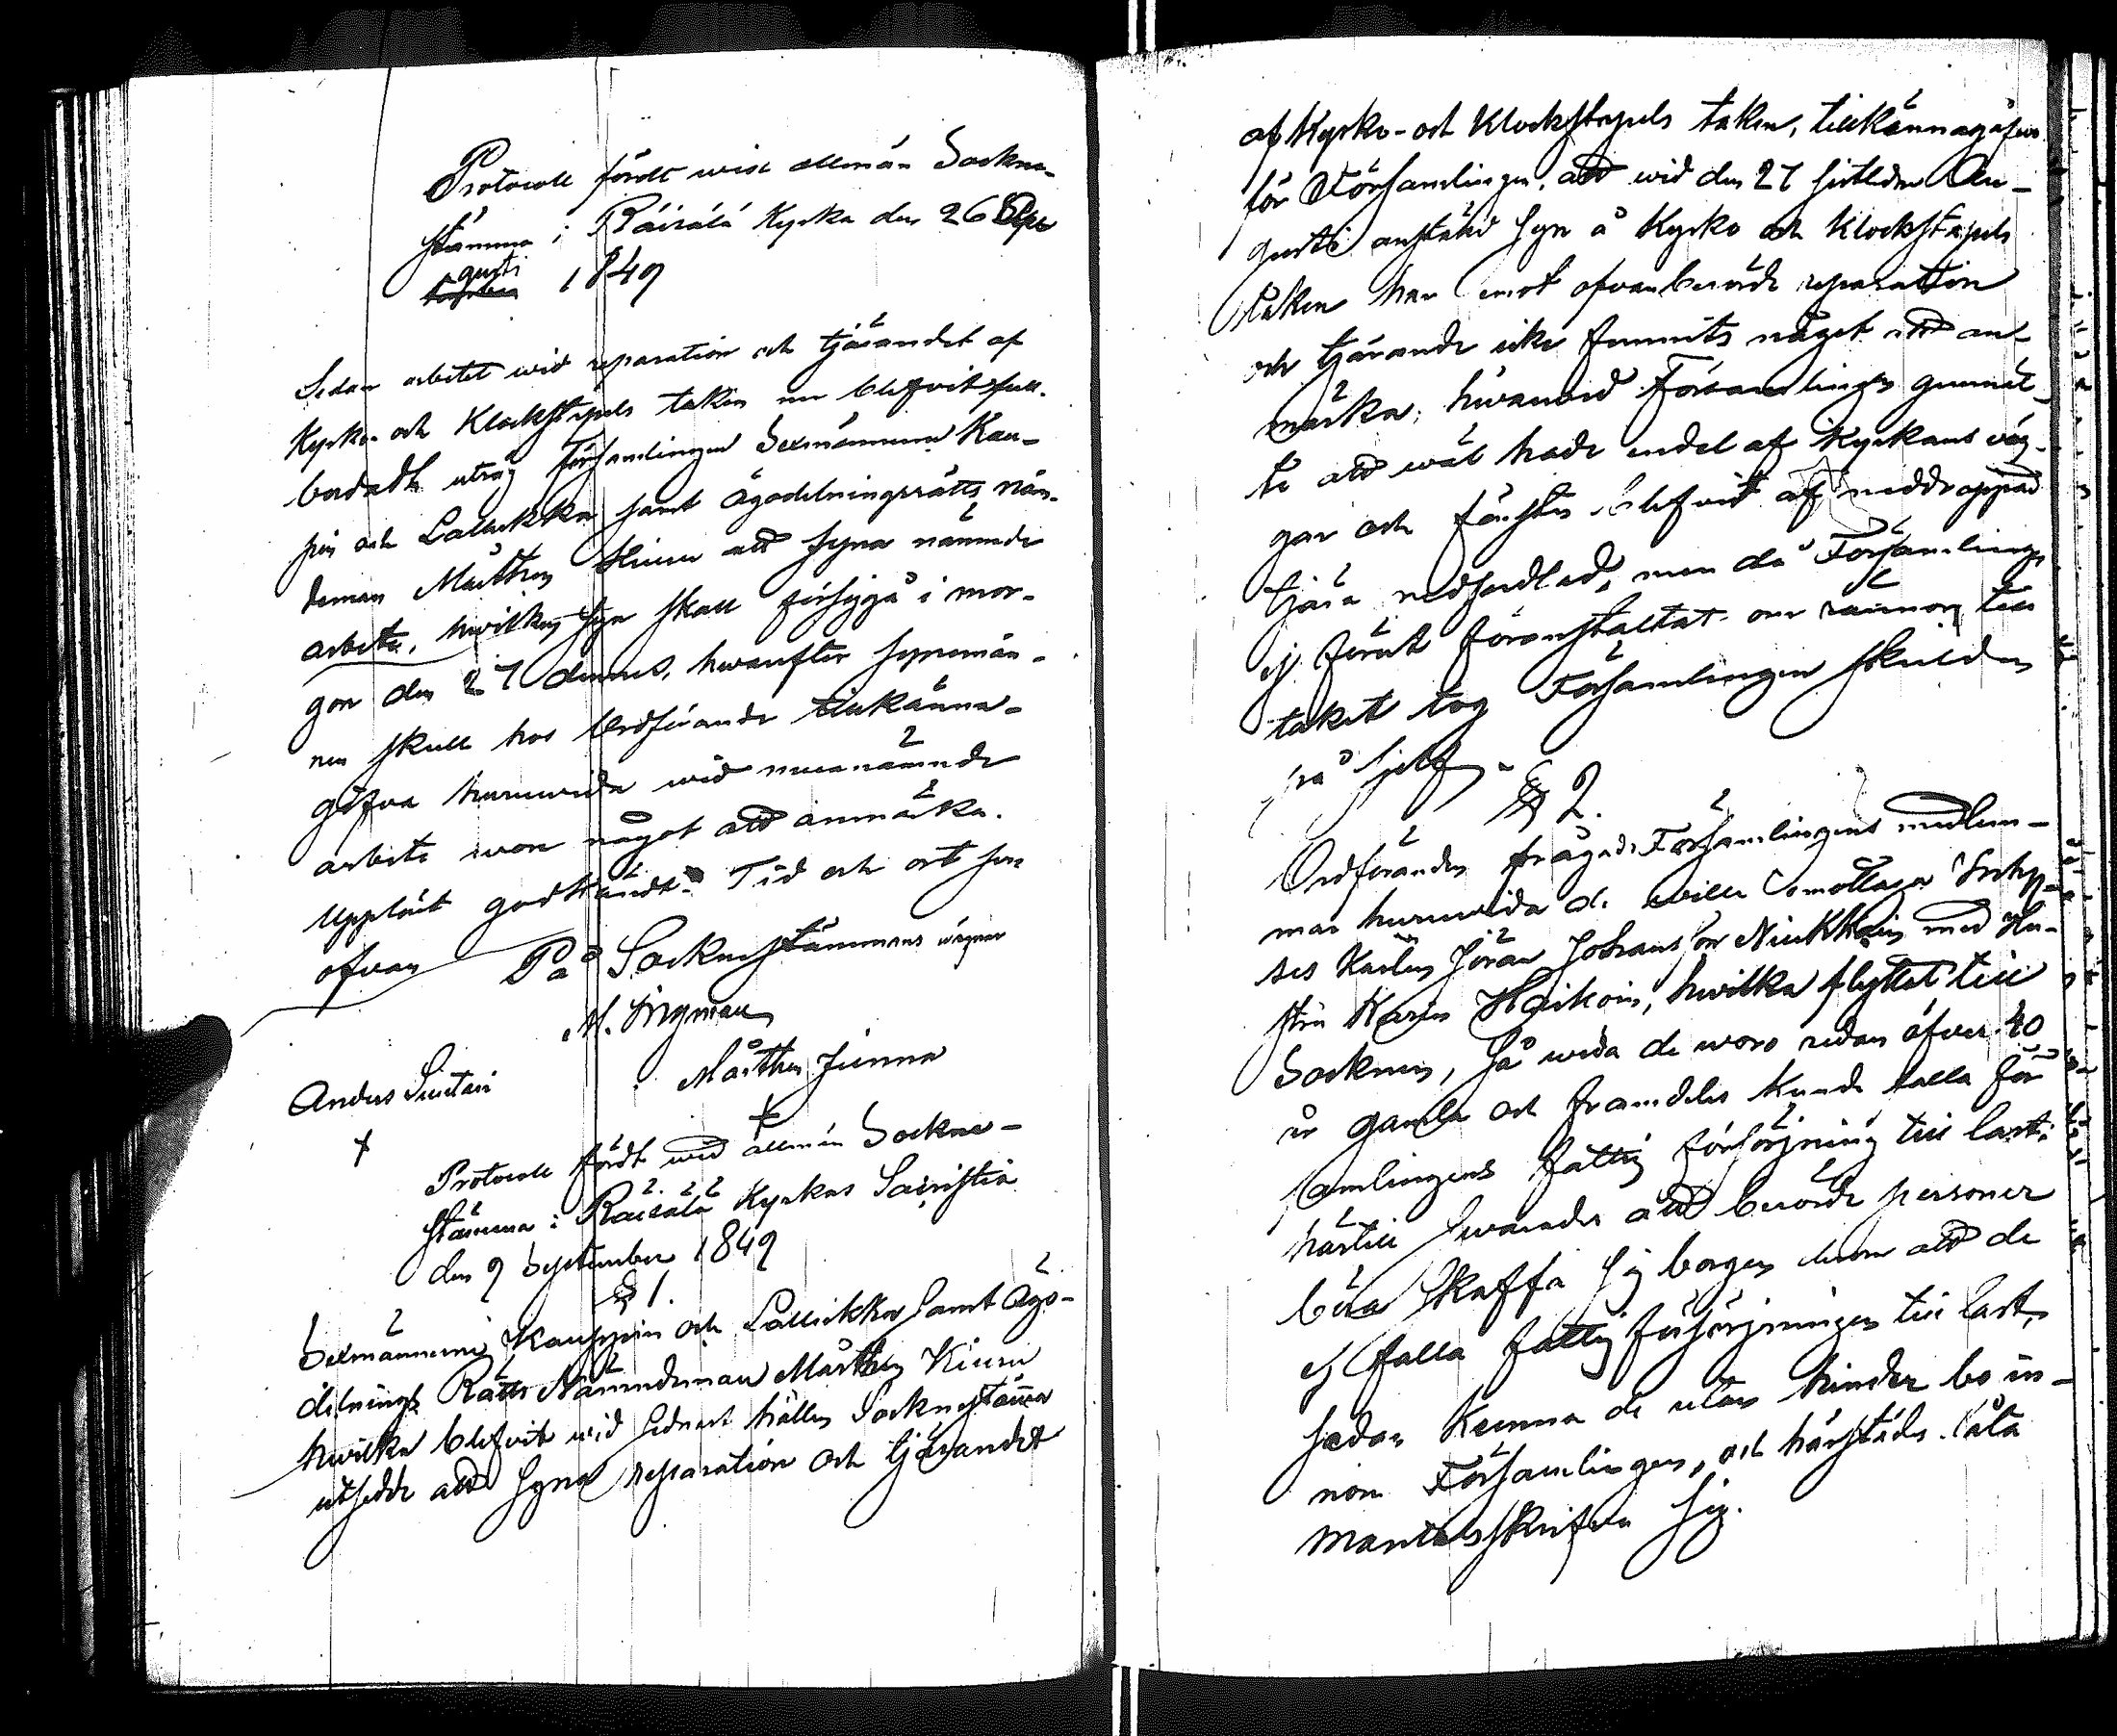 Protocoll fördt wid allmän Sockne-
stämma i Räisälä Kyrka den 26 Au
gusti 1849
Sedan arbetet wid reparation och tjärandet af
Kyrko- och Klockstapels taken nu blefvit full-
bordadt utsåg Församlingen Sexmännerne Kau-
pin och Lallukka samt Ägodelningsrätts Näm-
deman Mårthen Kiuru att syna nämnde
arbete, hvilken syn skall försiggå i mor-
gon den 27 dennes, hwarefter synemän-
nen skall hos Ordförande tillkänna-
gifva huruwida wid nu nämnde
arbete wore något att anmärka.
Uppläst godkändt. Tid och ort som
ofvan På Sockenstämmans wägnar
M. Ingman
Anders Sintari Mårthen Junna
Protocoll fördt wid allmän Sockne-
stämma i Räisälä Kyrkas Sacristia
den 9 September 1849
§ 1.
Sexmännerne Kauppin och Lallukka samt Ägo-
delnings Rätts Nämndeman Mårthen Kiuru
hwilka blefvit wid sednast hållen Sockenstämma
utsedde att syna reparation och tjärandet
af Kyrko- och Klockstapels taken, tillkännagåfvo
för Församlingen, att wid den 27 sistledne Au-
gusti anstäld syn å Kyrko och Klockstapels
taken har emot ofvanberörde reparation
och tjärande icke funnits något att an-
märka; hwarwid Församlingen genmäl-
te att wäl hade endel af Kyrkans väg-
gar och fönster blefvit af neddroppad
tjära nedsudlade, men då Församlingen
ej förut föranstaltat om rännor till
taket tog Församlingen skulden
på sjelf
§ 2.
Ordföranden frågade Församlingens medlem-
mar huruwida de wille emottaga Inhy-
ses Karlen Jöran Johansson Niukkain med Hu-
stru Karin Heikoin, hwilka flyttat till
Socknen, så wida de woro redan öfver 40
år gamla och framdeles kunde falla för
samlingens fattig försörjning till last;
härtill swarades att berörde personer
böra skaffa sig borgen derom att de
ej falla fattig försörjningen till last,
sedan kunna de utan hinder bo in-
nom Församlingen, och härstädes låta
mantalsskrifva sig.